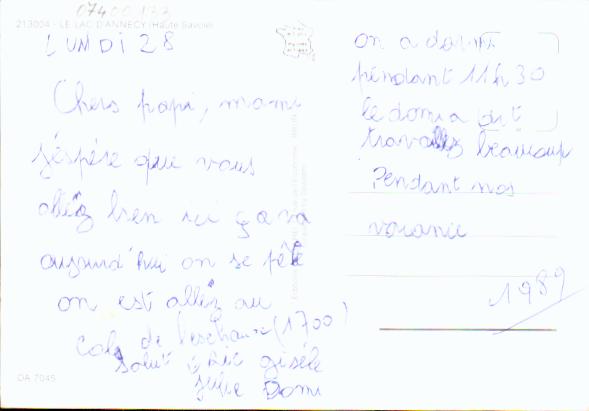 07400133
213004 - LE LAC D'ANNECY (Haute Savoie)
LUNDI 28
Chers papi, mami
j'éspére que vous
alléz bien ici ça va
aujourd'hui on se
on est alléz au
cols de (1700)
Salut Eric gisèle
Domi
DA 7045
on a dormi
pendant 11h30
le domi a dit
travaillez beaucoup
Pendant nos
vacance
1989